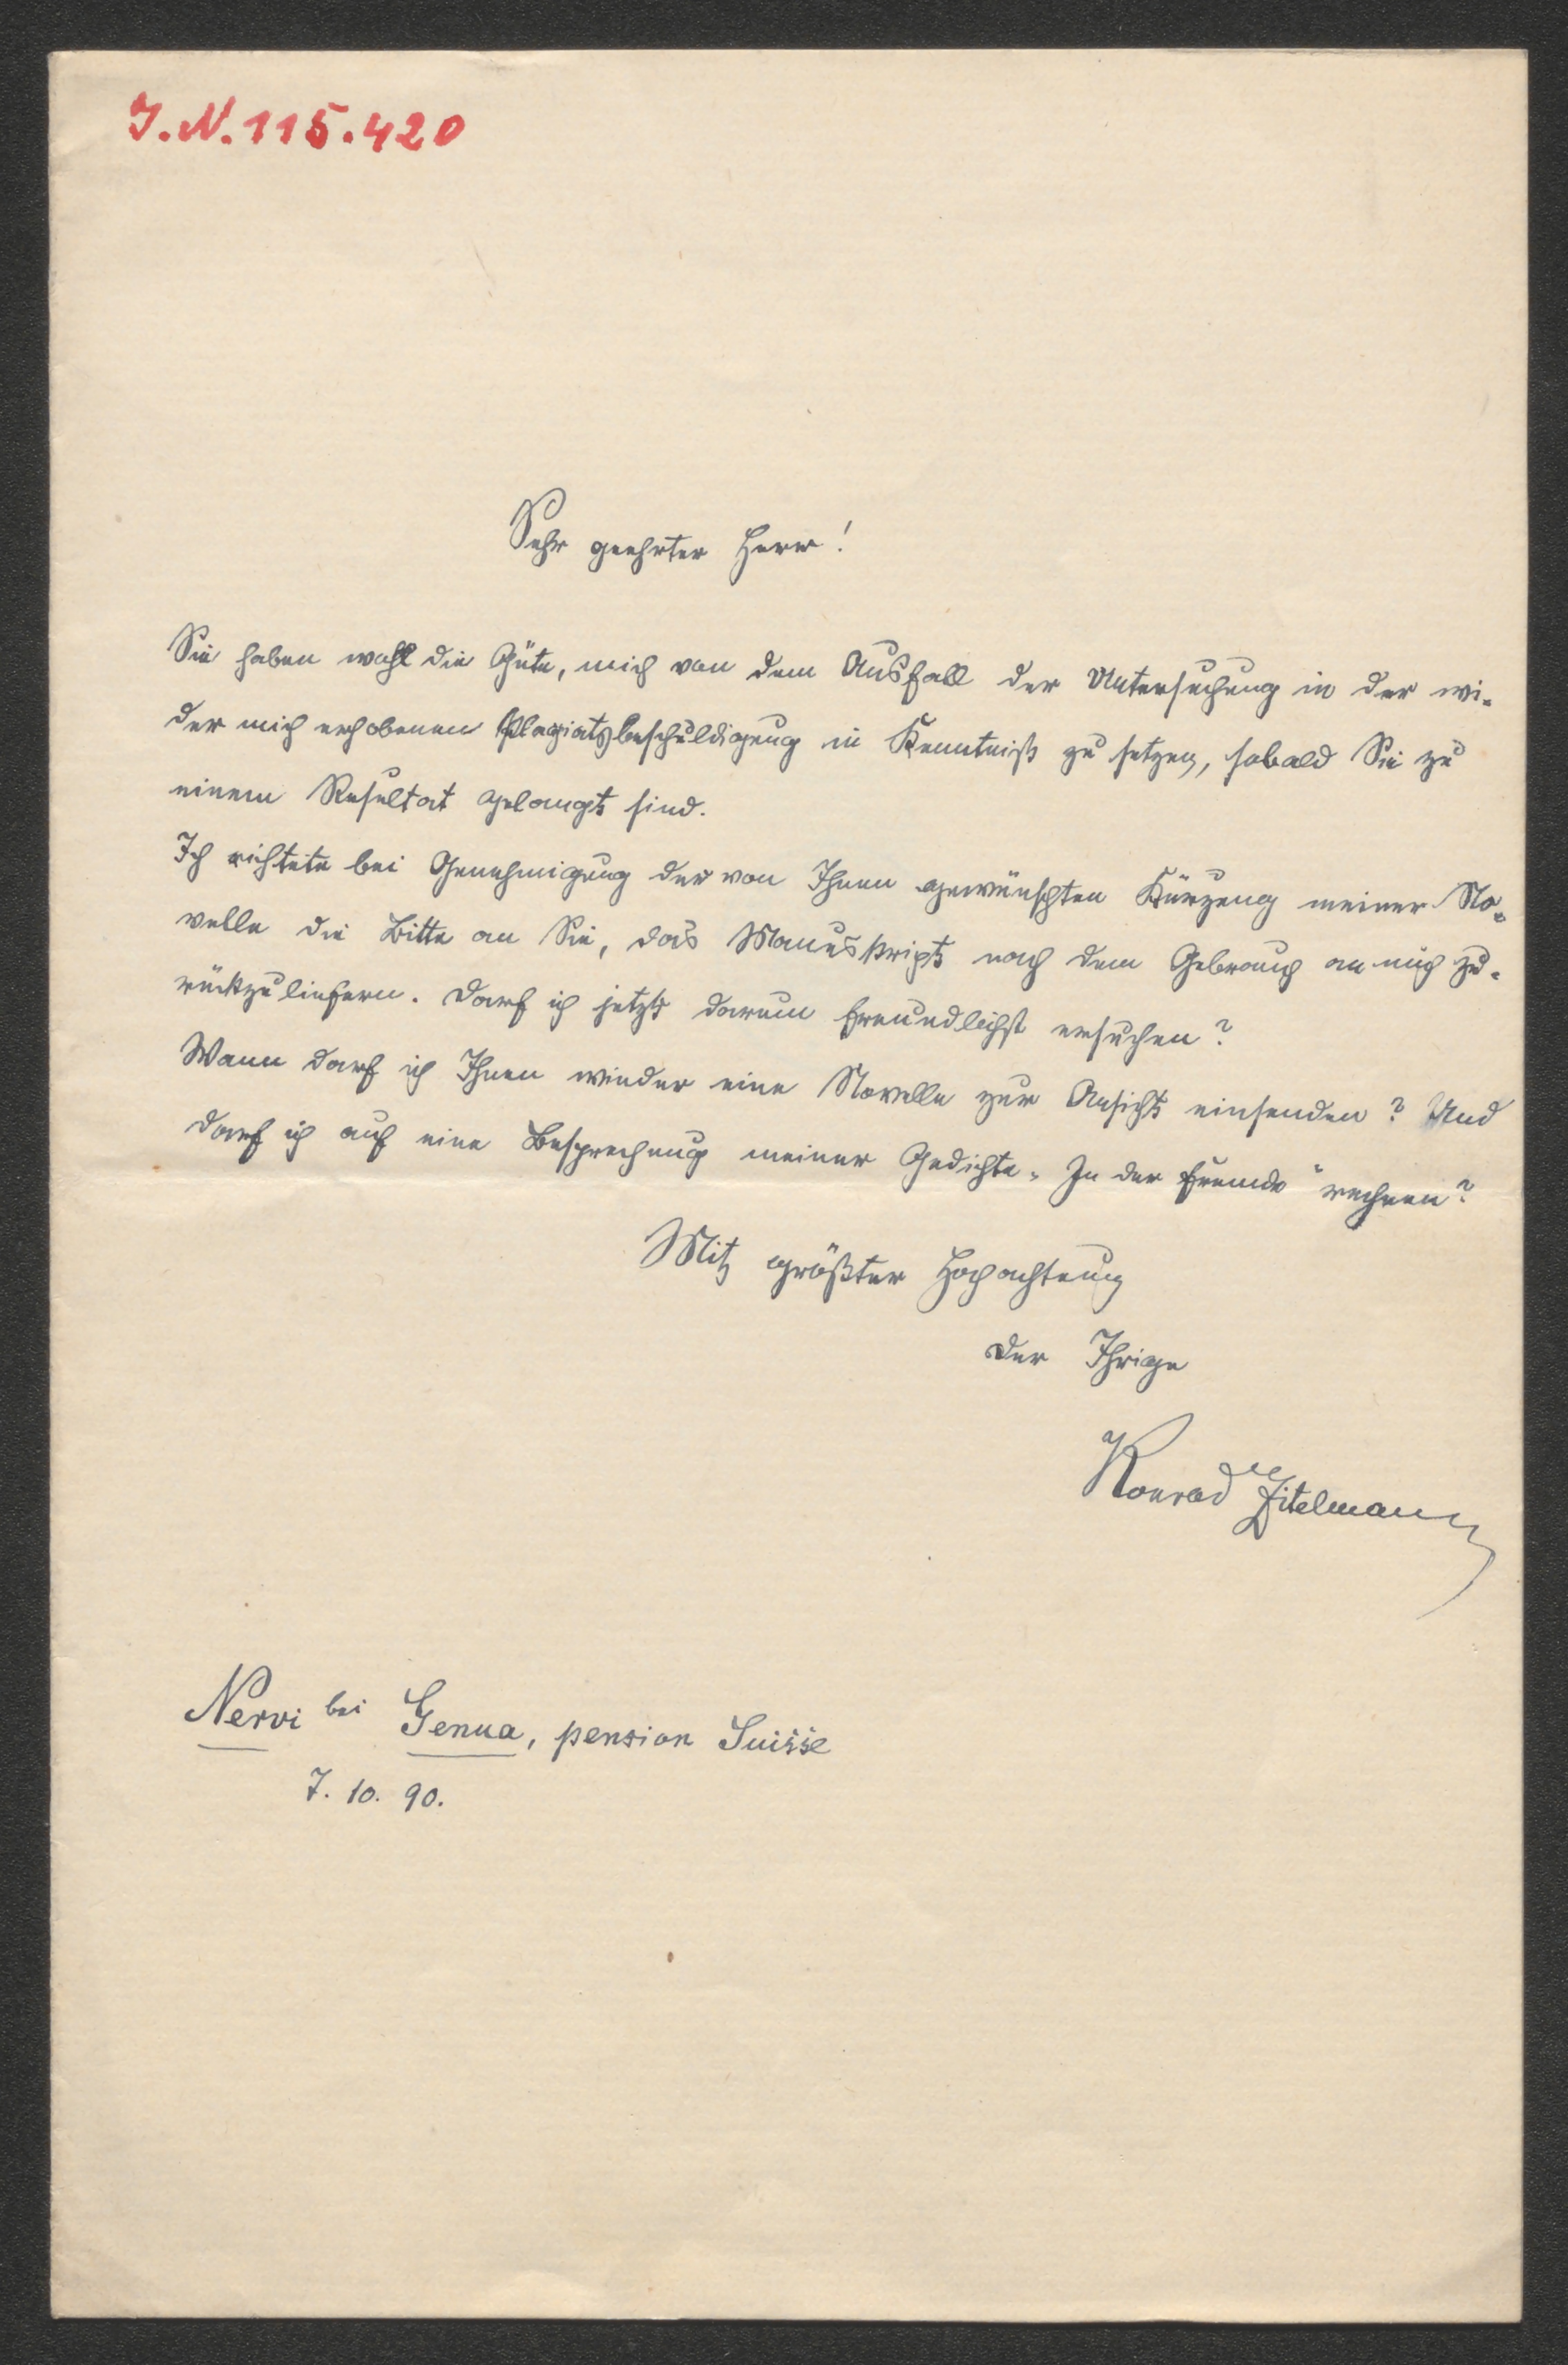 J.N.115.420
Sehr geehrter Herr!
Sie haben wohl die Güte, mich von dem Ausfall der Untersuchung in der wi-
der mich erhobenen Plagiatsbeschuldigung in Kenntniß zu setzen, sobald Sie zu
einem Resultat gelangt sind.
Ich richtete bei Genehmigung der von Ihnen gewünschten Kürzung meiner No-
velle die Bitte an Sie, das Manuskript nach dem Gebrauch an mich zu-
rückzuliefern. Darf ich jetzt darum freundlichst ersuchen?
Wann darf ich Ihnen wieder eine Novelle zur Ansicht einsenden? Und
darf ich auf eine Besprechung meiner Gedichte „In der Fremde“ rechnen?
Mit größter Hochachtung
der Ihrige
Konrad Zitelmann
Nervi bei Genua, pension Suisse
7. 10. 90.